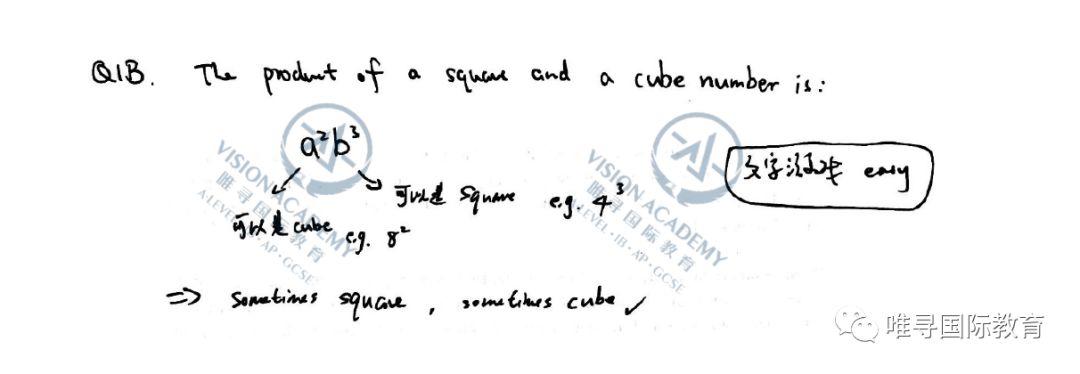 Q1B. The product of a square and a cube number is:
a²b³
文字游戏 easy
可以是 square e.g. 4³
可以是 cube e.g. 8²
⇒ sometimes square, sometimes cube ✓
VISION ACADEMY
唯寻国际教育
A LEVEL·IB·AP·GCSE
VISION ACADEMY
唯寻国际教育
A LEVEL·IB·AP·GCSE
唯寻国际教育